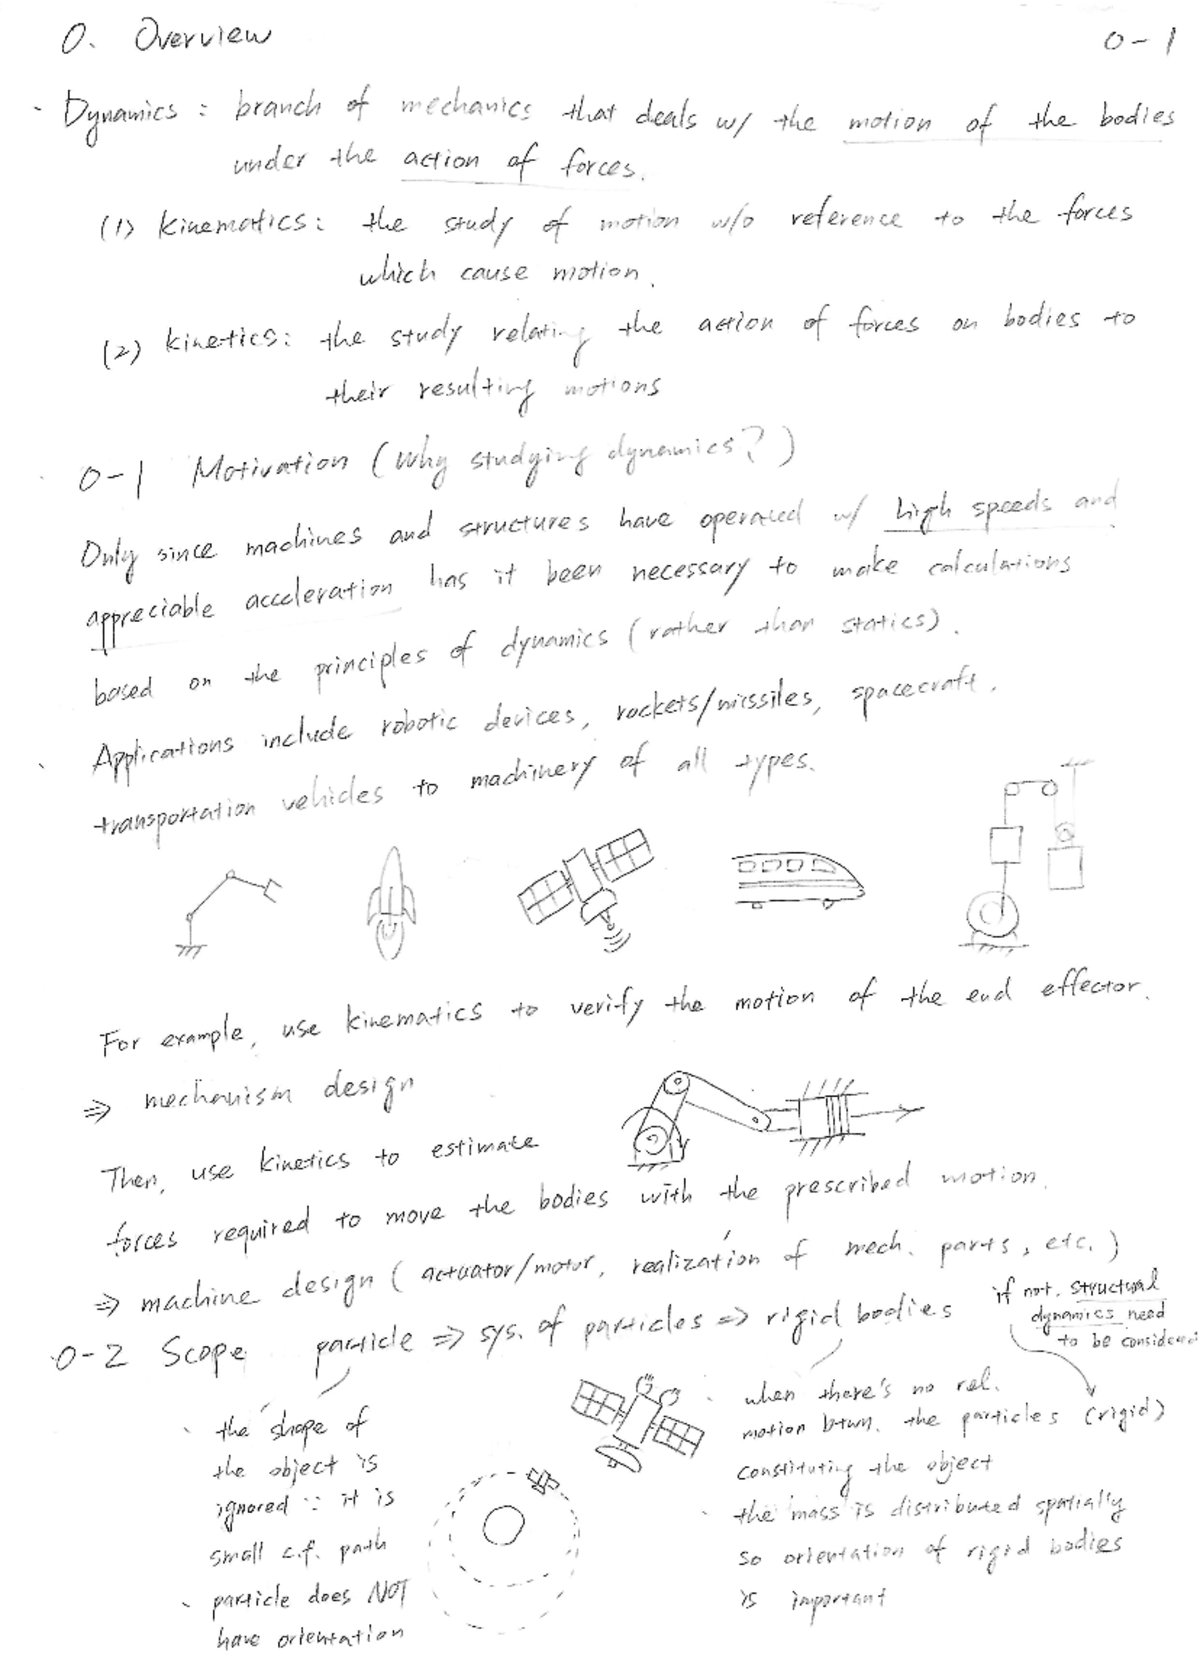 0. Overview
0-1
Dynamics : branch of mechanics that deals w/ the motion of the bodies
under the action of forces.
(1) Kinematics: the study of motion w/o reference to the forces
which cause motion.
(2) Kinetics: the study relating the action of forces on bodies to
their resulting motions
0-1 Motivation (Why studying dynamics?)
Only since machines and structures have operated w/ high speeds and
appreciable acceleration has it been necessary to make calculations
based on the principles of dynamics (rather than statics).
Applications include robotic devices, rockets/missiles, spacecraft,
transportation vehicles to machinery of all types.
For example, use kinematics to verify the motion of the end effector.
⇒ mechanism design
Then, use kinetics to estimate
forces required to move the bodies with the prescribed motion.
⇒ machine design (actuator/motor, realization of mech. parts, etc.)
0-2 Scope particle ⇒ sys. of particles ⇒ rigid bodies
if not, structural
dynamics need
to be considered
the shape of
the object is
ignored ∵ it is
small c.f. path
particle does NOT
have orientation
when there's no rel.
motion btwn. the particles (rigid)
constituting the object
the mass is distributed spatially
so orientation of rigid bodies
is important